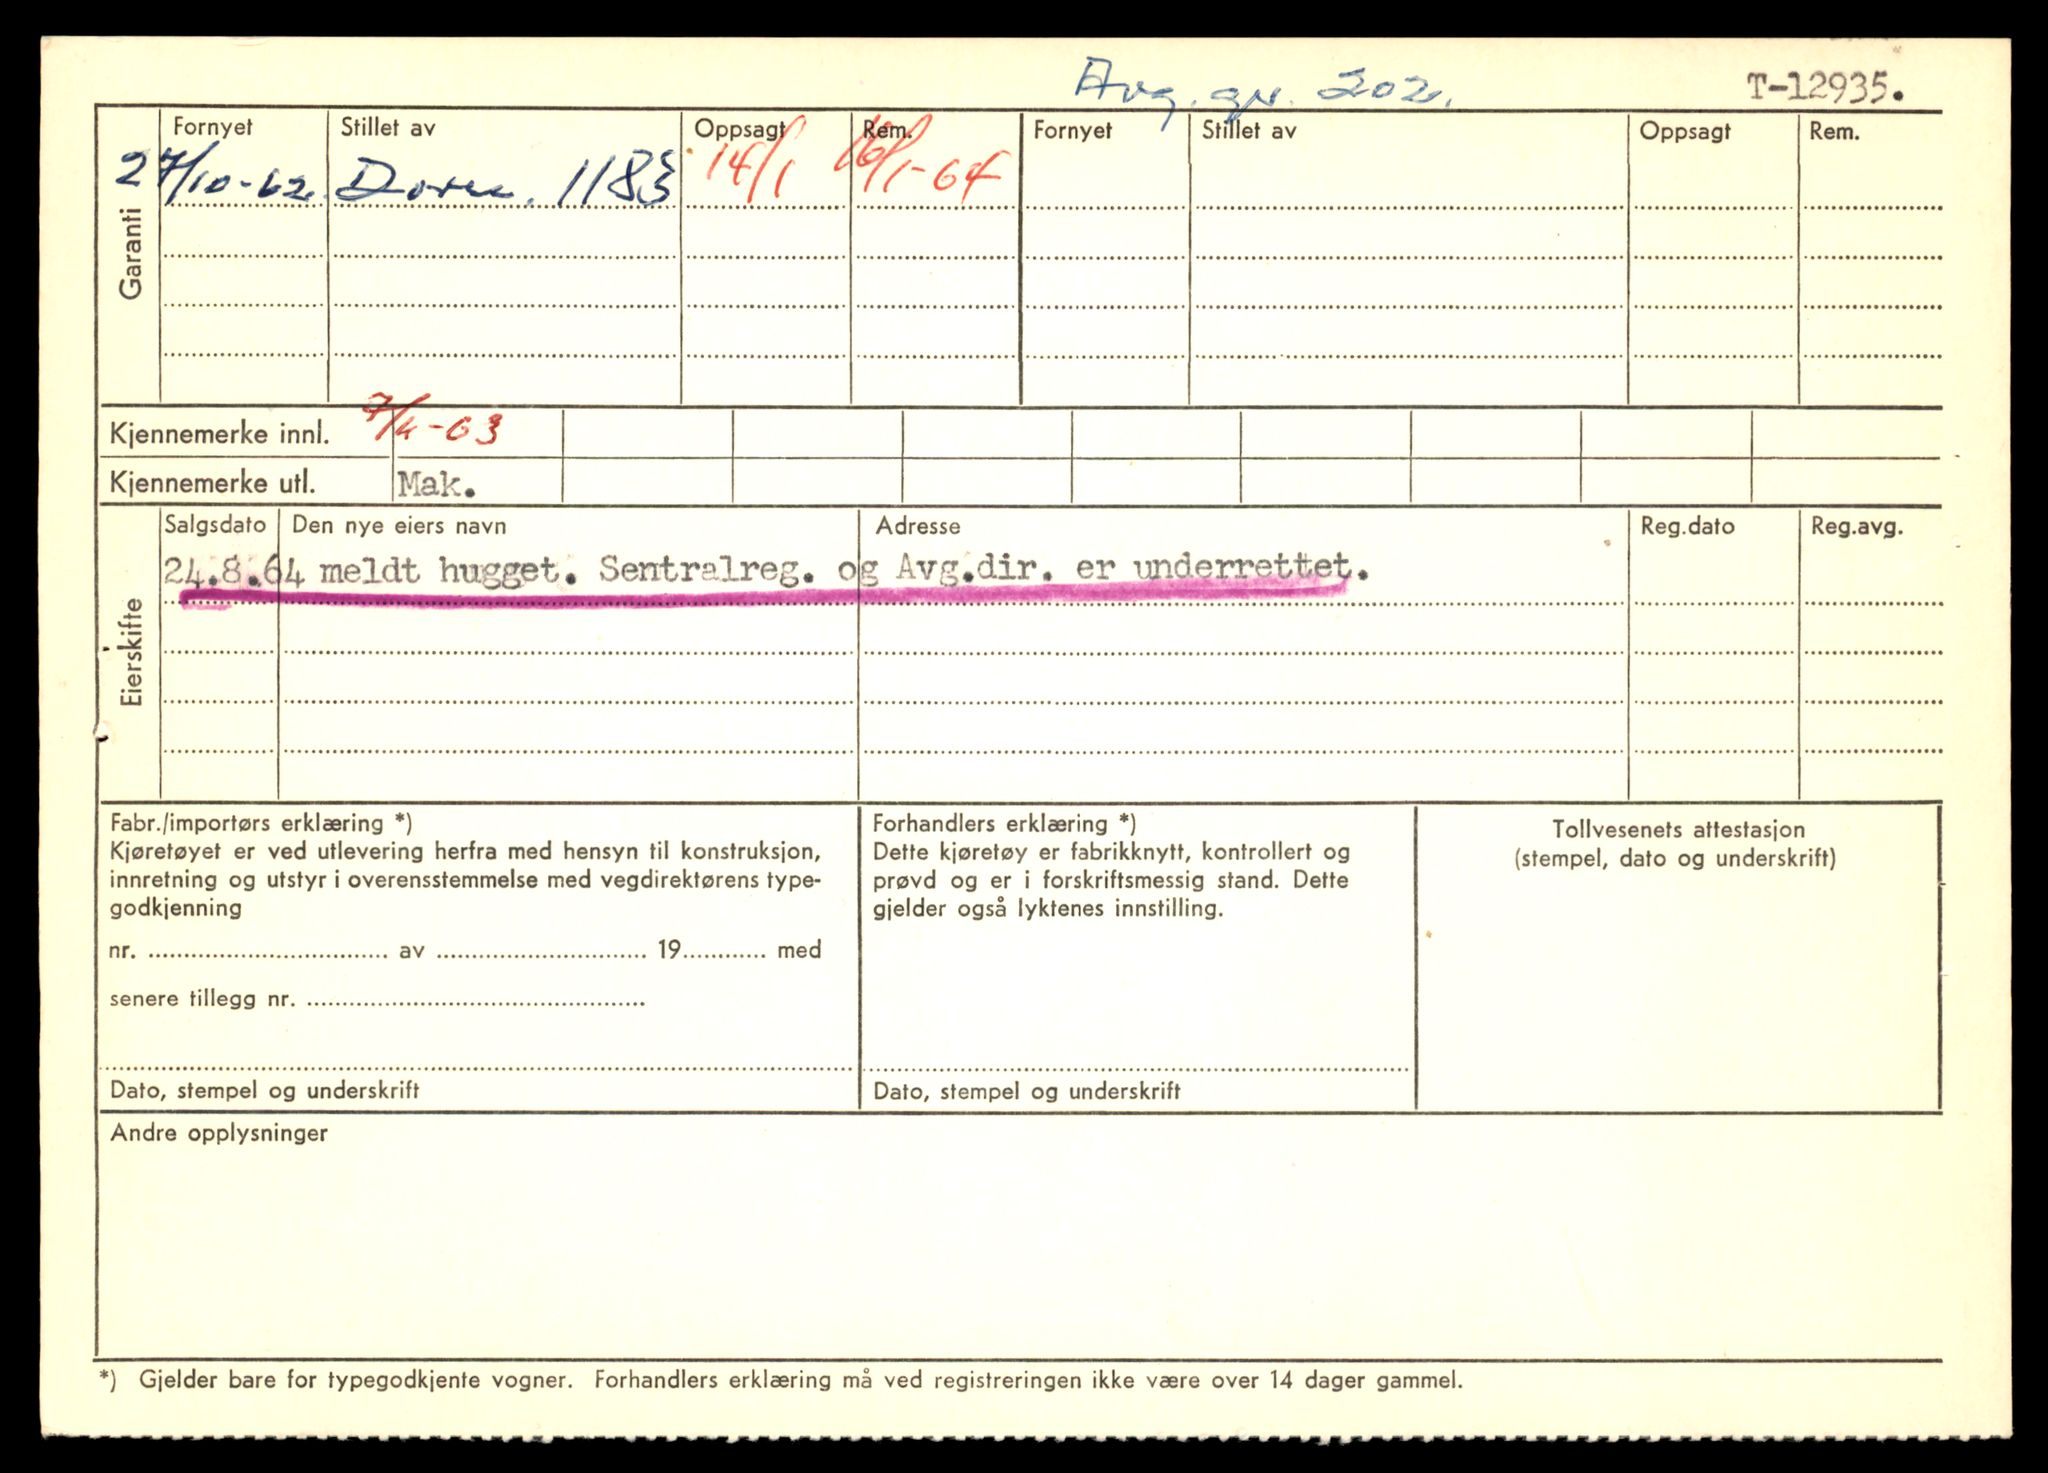 Avg. gr. 202. T-12935.
Garanti
Fornyet Stillet av Oppsagt Rem. Fornyet Stillet av Oppsagt Rem.
27/10-62. 1183 14/1 16/1-64
Kjennemerke innl. 7/11-63
Kjennemerke utl. Mak.
Eierskifte
Salgsdato Den nye eiers navn Adresse Reg.dato Reg.avg.
24.8.64 meldt hugget. Sentralreg. og Avg.dir. er underrettet.
Fabr./importørs erklæring *)
Kjøretøyet er ved utlevering herfra med hensyn til konstruksjon,
innretning og utstyr i overensstemmelse med vegdirektørens type-
godkjenning
nr. .................................. av .............................. 19............ med
senere tillegg nr. ................................................
Dato, stempel og underskrift
Forhandlers erklæring *)
Dette kjøretøy er fabrikknytt, kontrollert og
prøvd og er i forskriftsmessig stand. Dette
gjelder også lyktenes innstilling.
Dato, stempel og underskrift
Tollvesenets attestasjon
(stempel, dato og underskrift)
Andre opplysninger
*) Gjelder bare for typegodkjente vogner. Forhandlers erklæring må ved registreringen ikke være over 14 dager gammel.